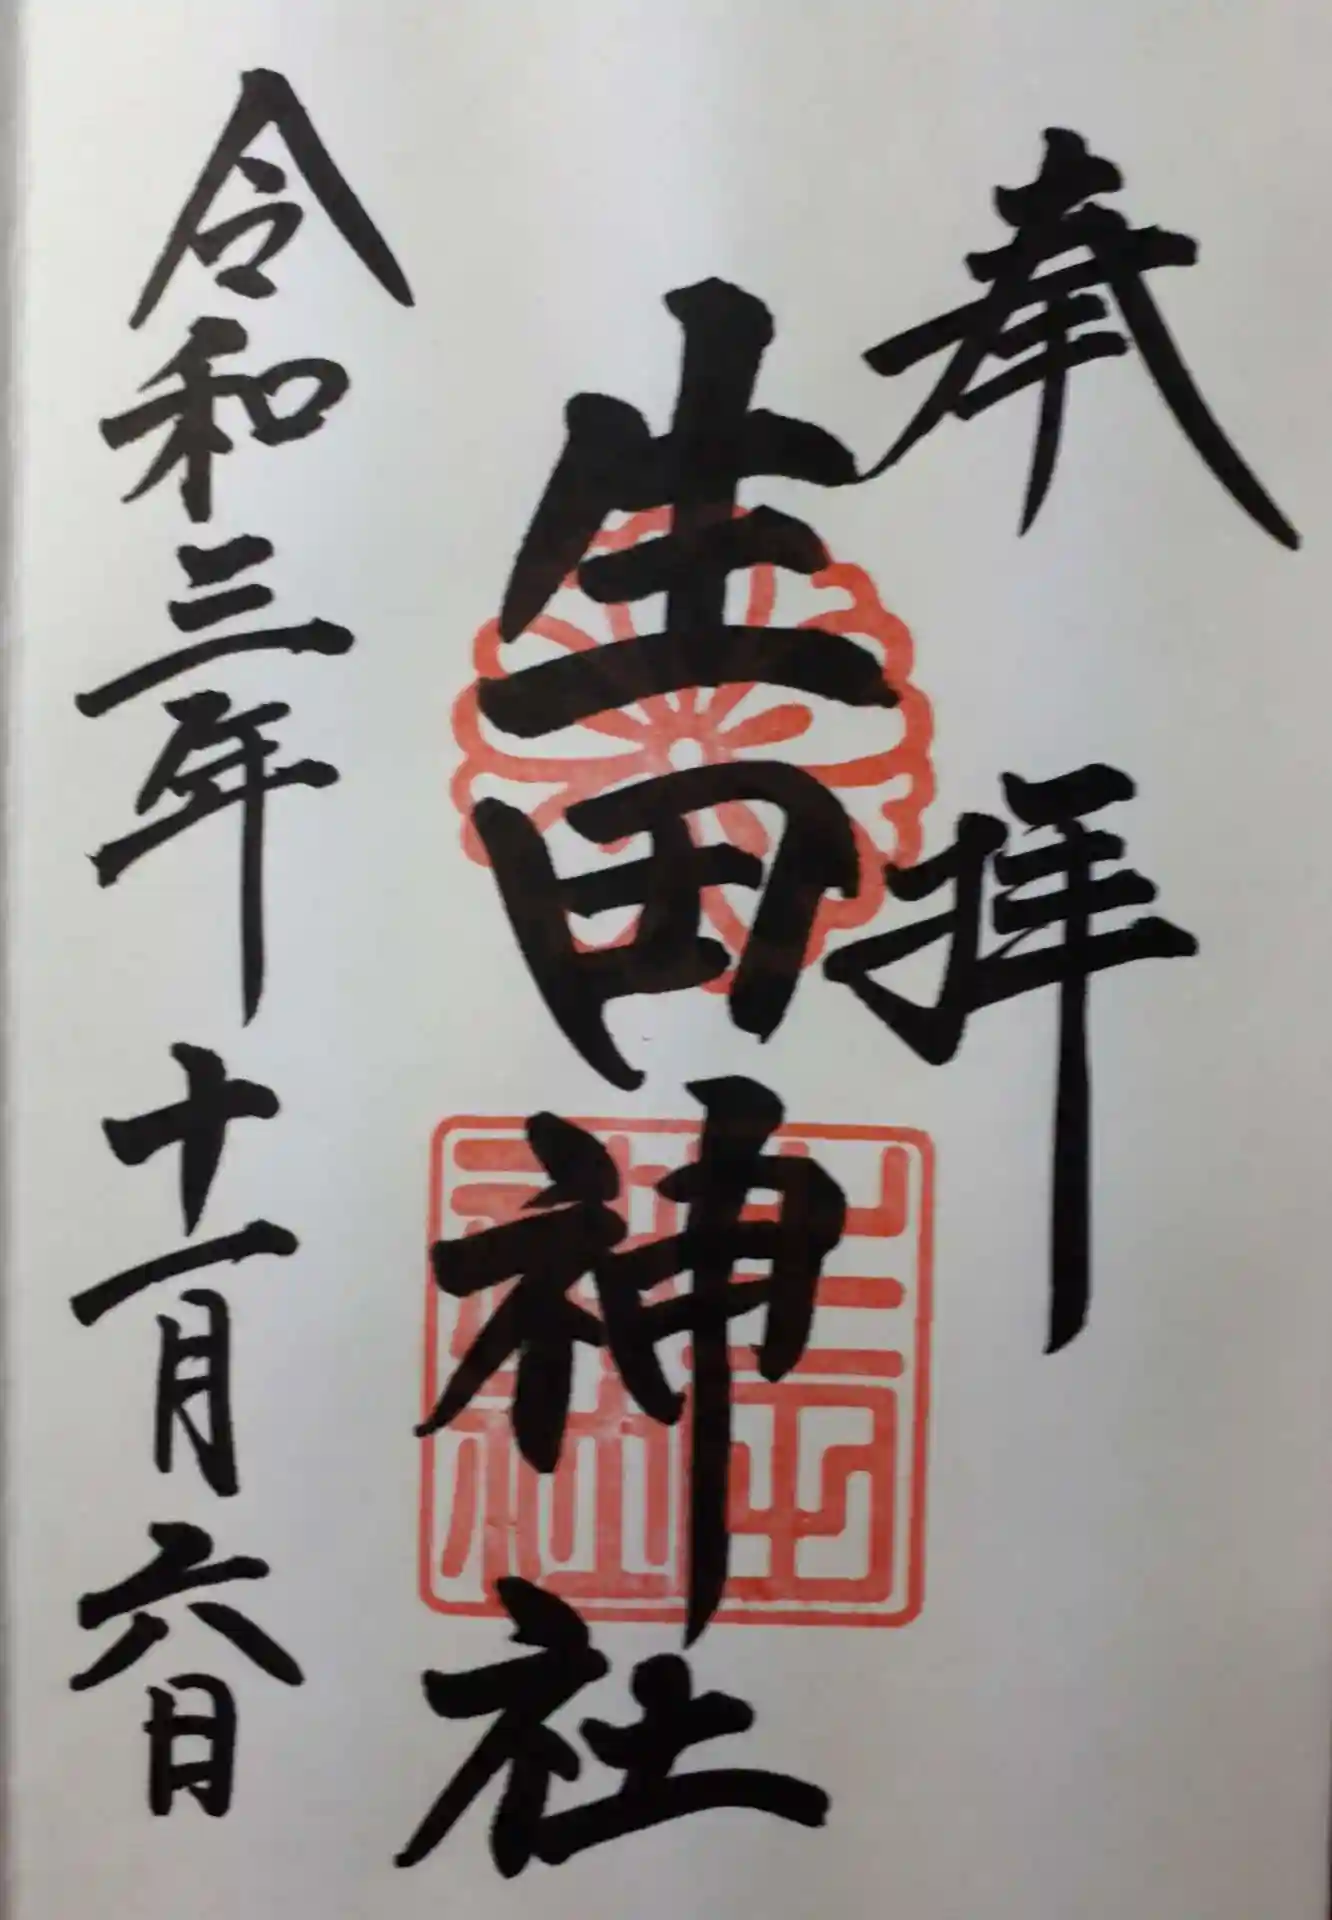 奉拝
生田神社
生田神社
令和三年十一月六日